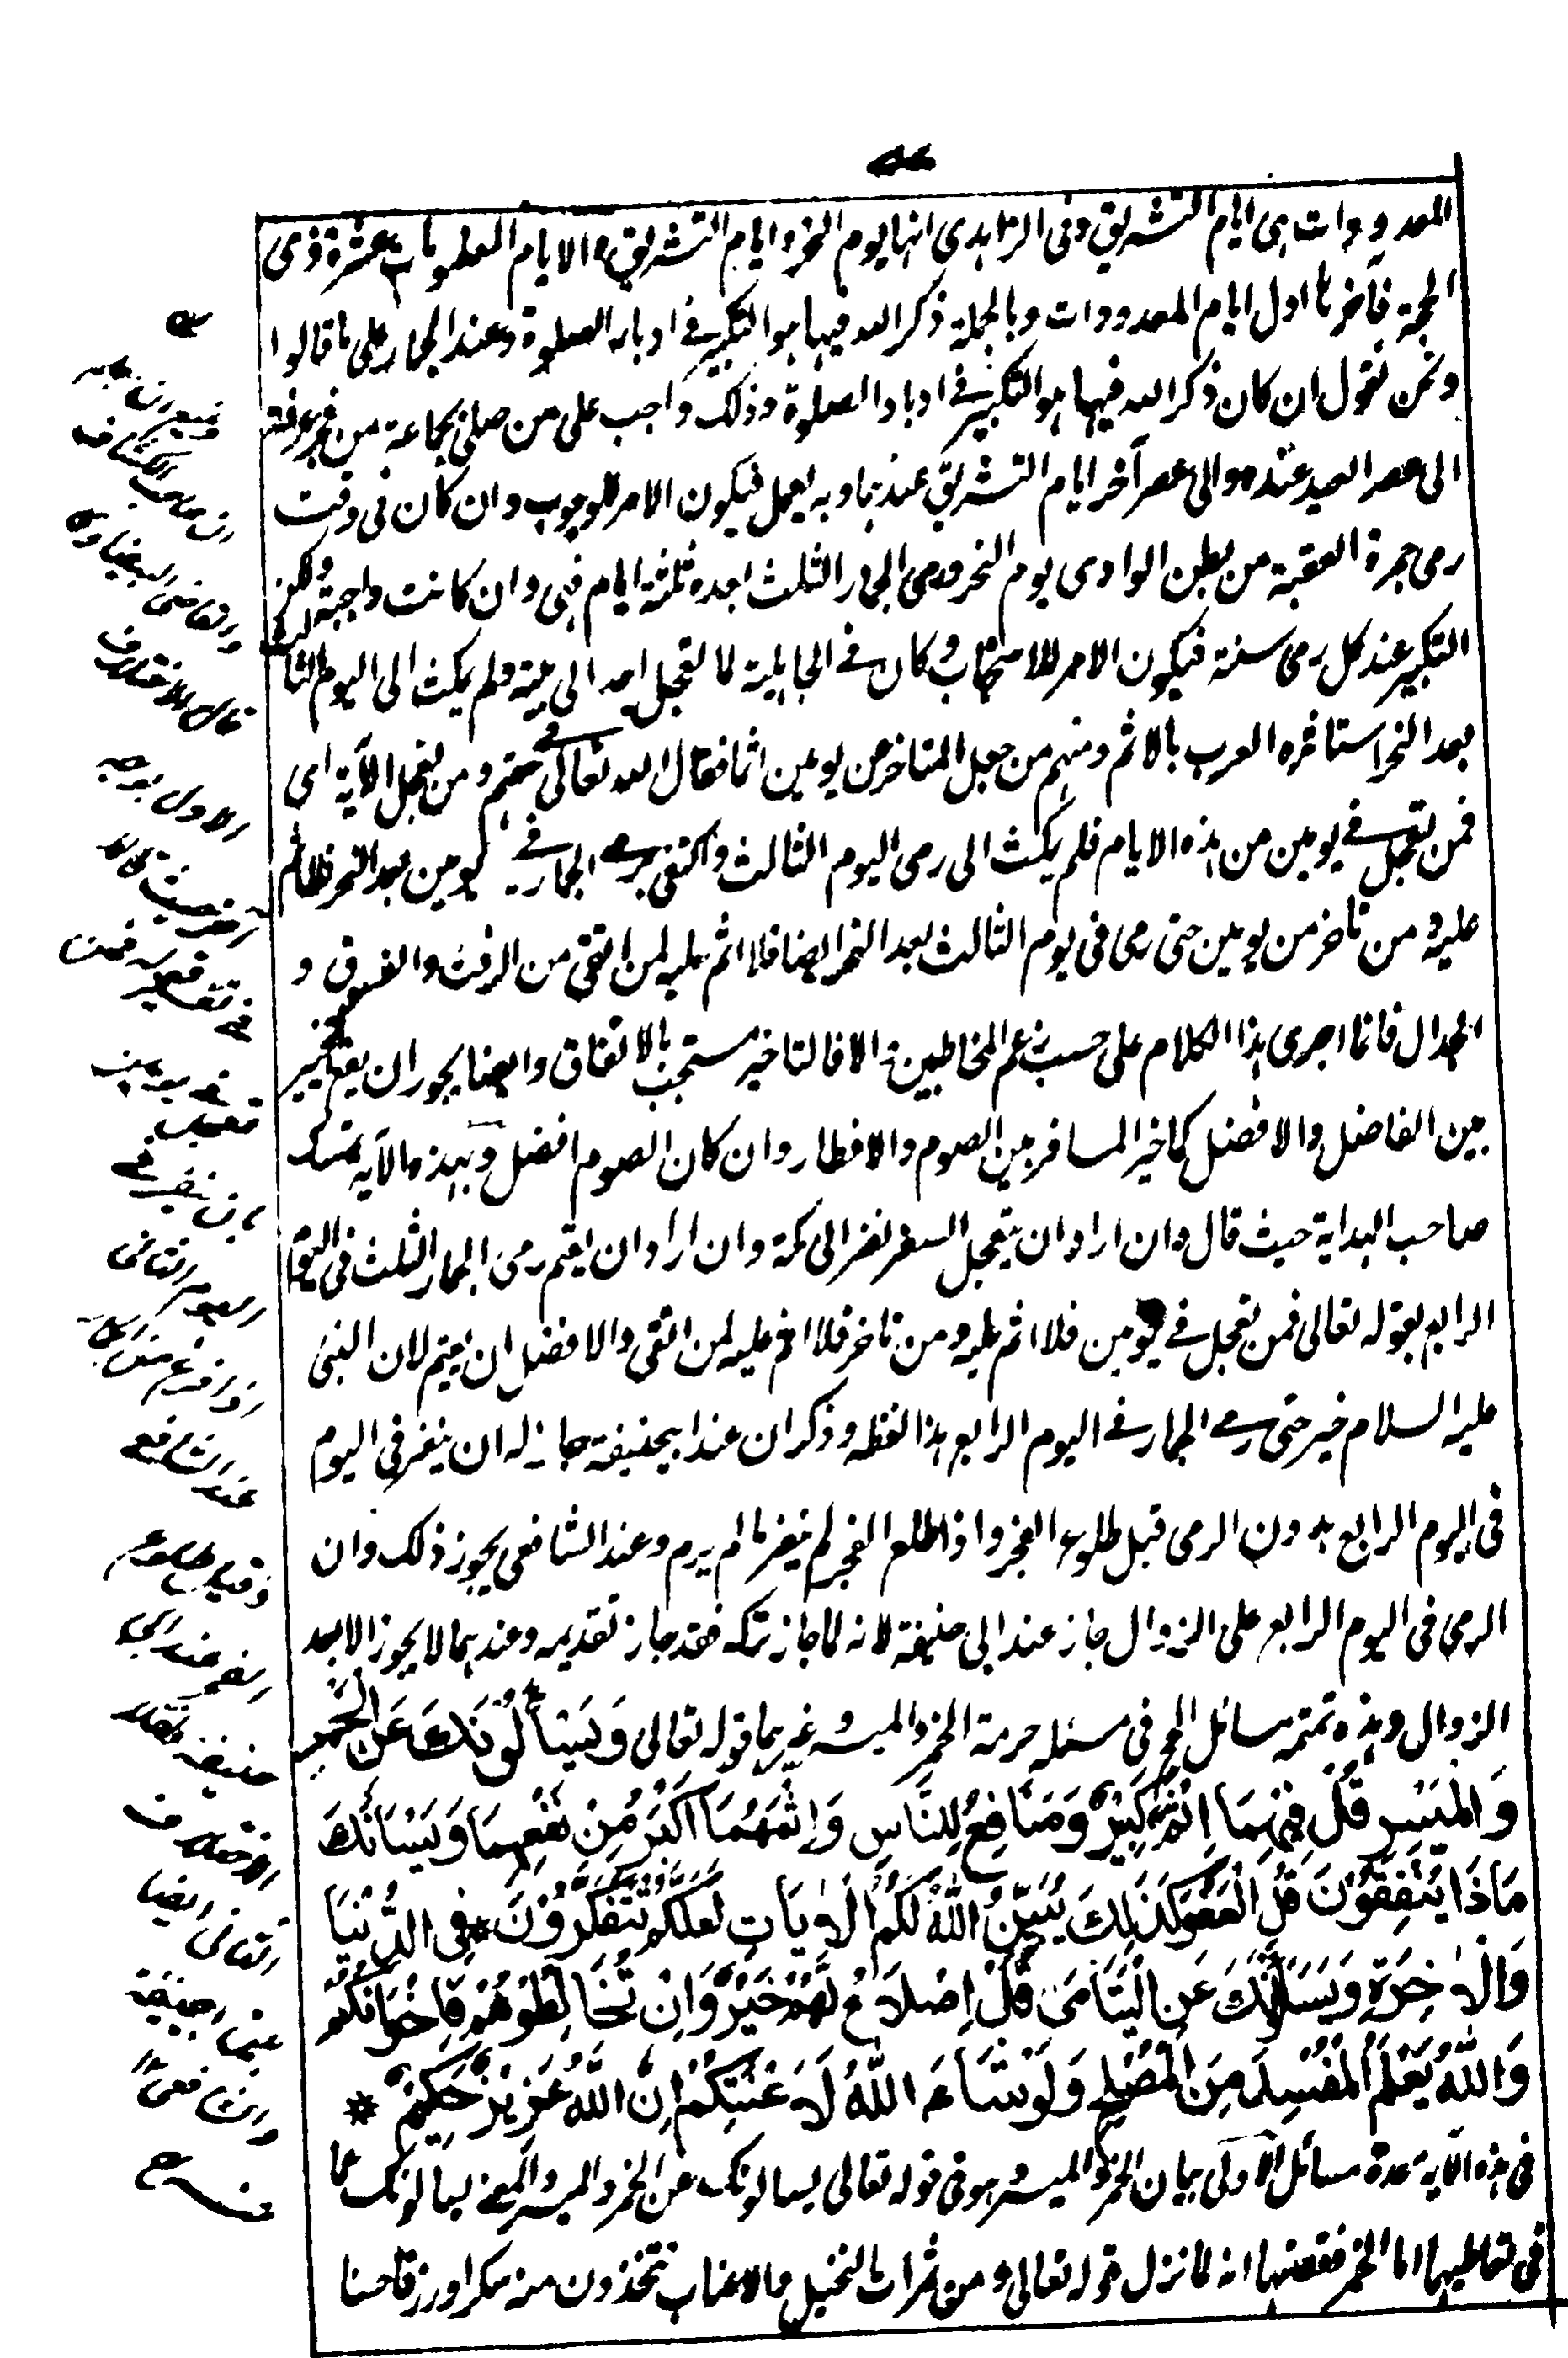 المعدودات هى ايام التشريق وفى الزاهدى انها يوم النحر وايام التشريق والايام المعلومات عشرة ذى
الحجة فآخرها اول ايام المعدودات وبالجملة ذكر الله فيها هو التكبير فى ادبار الصلوة وعند الجمار على ما قالوا
ونحن نقول ان كان ذكر الله فيها هو التكبير فى ادبار الصلوة وذلك واجب على من صلى بجماعة من فجر عرفة
الى عصر العيد عنده والى عصر آخر ايام التشريق عندهما وبه يعمل فيكون الامر للوجوب وان كان فى وقت
رمى جمرة العقبة من بطن الوادى يوم النحر ورمى الجمار الثلث بعده ثلثة ايام فهى وان كانت واجبة ولكن
التكبير عند كل رمى سنة فيكون الامر للاستحباب وكان فى الجاهلية لما تعجل احد الى بيته ولم يمكث الى اليوم الثالث
بعد النحر استاثره العرب بالاثم ومنهم من جعل المتاخر من يومين اثما فقال الله تعالى فى حقهم ومن تعجل الآية اى
فمن تعجل فى يومين من هذه الايام فلم يمكث الى رمى اليوم الثالث واكتفى برمى الجمار فى يومين بعد النحر فلا اثم
عليه ومن تاخر من يومين حتى رمى فى يوم الثالث بعد النحر ايضا فلا اثم عليه لمن اتقى من الرفث والفسوق و
الجدال فانما اجرى هذا الكلام على حسب زعم المخاطبين والا فالتاخير مستحب بالاتفاق وايضا يجوز ان يقع التخيير
بين الفاضل والافضل كما خير المسافر بين الصوم والافطار وان كان الصوم افضل وبهذه الآية تمسك
صاحب الهداية حيث قال وان اراد ان يتعجل السفر نفر الى مكة وان اراد ان يقيم رمى الجمار الثلث فى اليوم
الرابع بقوله تعالى فمن تعجل فى يومين فلا اثم عليه ومن تاخر فلا اثم عليه لمن اتقى والافضل ان يقيم لان النبى
عليه السلام خير حتى رمى الجمار فى اليوم الرابع هذا لفظه وذكر ان عند ابيحنيفة جاز له ان ينفر فى اليوم
فى اليوم الرابع بدون الرمى قبل طلوع الفجر واذا طلع الفجر لم ينفر ما لم يرم وعند الشافعى يجوز ذلك وان
الرمى فى اليوم الرابع على الزوال جاز عند ابى حنيفة لانه لما جاز تركه فقد جاز تقديمه وعندهما لا يجوز الا بعد
الزوال وهذه تتمة مسائل الحج فى مسئلة حرمة الخمر والميسر وغيرهما قوله تعالى وَيَسْأَلُونَكَ عَنِ الْخَمْرِ
وَالْمَيْسِرِ قُلْ فِيهِمَا اِثْمٌ كَبِيْرٌ وَمَنَافِعُ لِلنَّاسِ وَإِثْمُهُمَا اَكْبَرُ مِنْ نَفْعِهِمَا وَيَسْأَلُونَكَ
مَاذَا يُنْفِقُوْنَ قُلِ الْعَفْوَ كَذَلِكَ يُبَيِّنُ اللّٰهُ لَكُمُ الْاٰيَاتِ لَعَلَّكُمْ تَتَفَكَّرُوْنَ * فِى الدُّنْيَا
وَالْاٰخِرَةِ وَيَسْأَلُوْنَكَ عَنِ الْيَتَامَى قُلْ اِصْلَاحٌ لَهُمْ خَيْرٌ وَاِنْ تُخَالِطُوْهُمْ فَاِخْوَانُكُمْ
وَاللّٰهُ يَعْلَمُ الْمُفْسِدَ مِنَ الْمُصْلِحِ وَلَوْ شَاءَ اللّٰهُ لَاَعْنَتَكُمْ اِنَّ اللّٰهَ عَزِيْزٌ حَكِيْمٌ *
فى هذه الآية عدة مسائل الاولى بيان الخمر والميسر وهو فى قوله تعالى يسالونك عن الخمر والميسر والمعنى يسالونك عما
فى تعاطيهما اما الخمر فقصتها انه لما نزل قوله تعالى ومن ثمرات النخيل والاعناب تتخذون منه سكرا ورزقا حسنا
ان صاحب الكشاف
والقاضى البيضاوى
الاول
عند الشافعى
وقبل طلوع
الفجر عند ابى
حنيفة
الاختلاف
ايضا
والشافعى